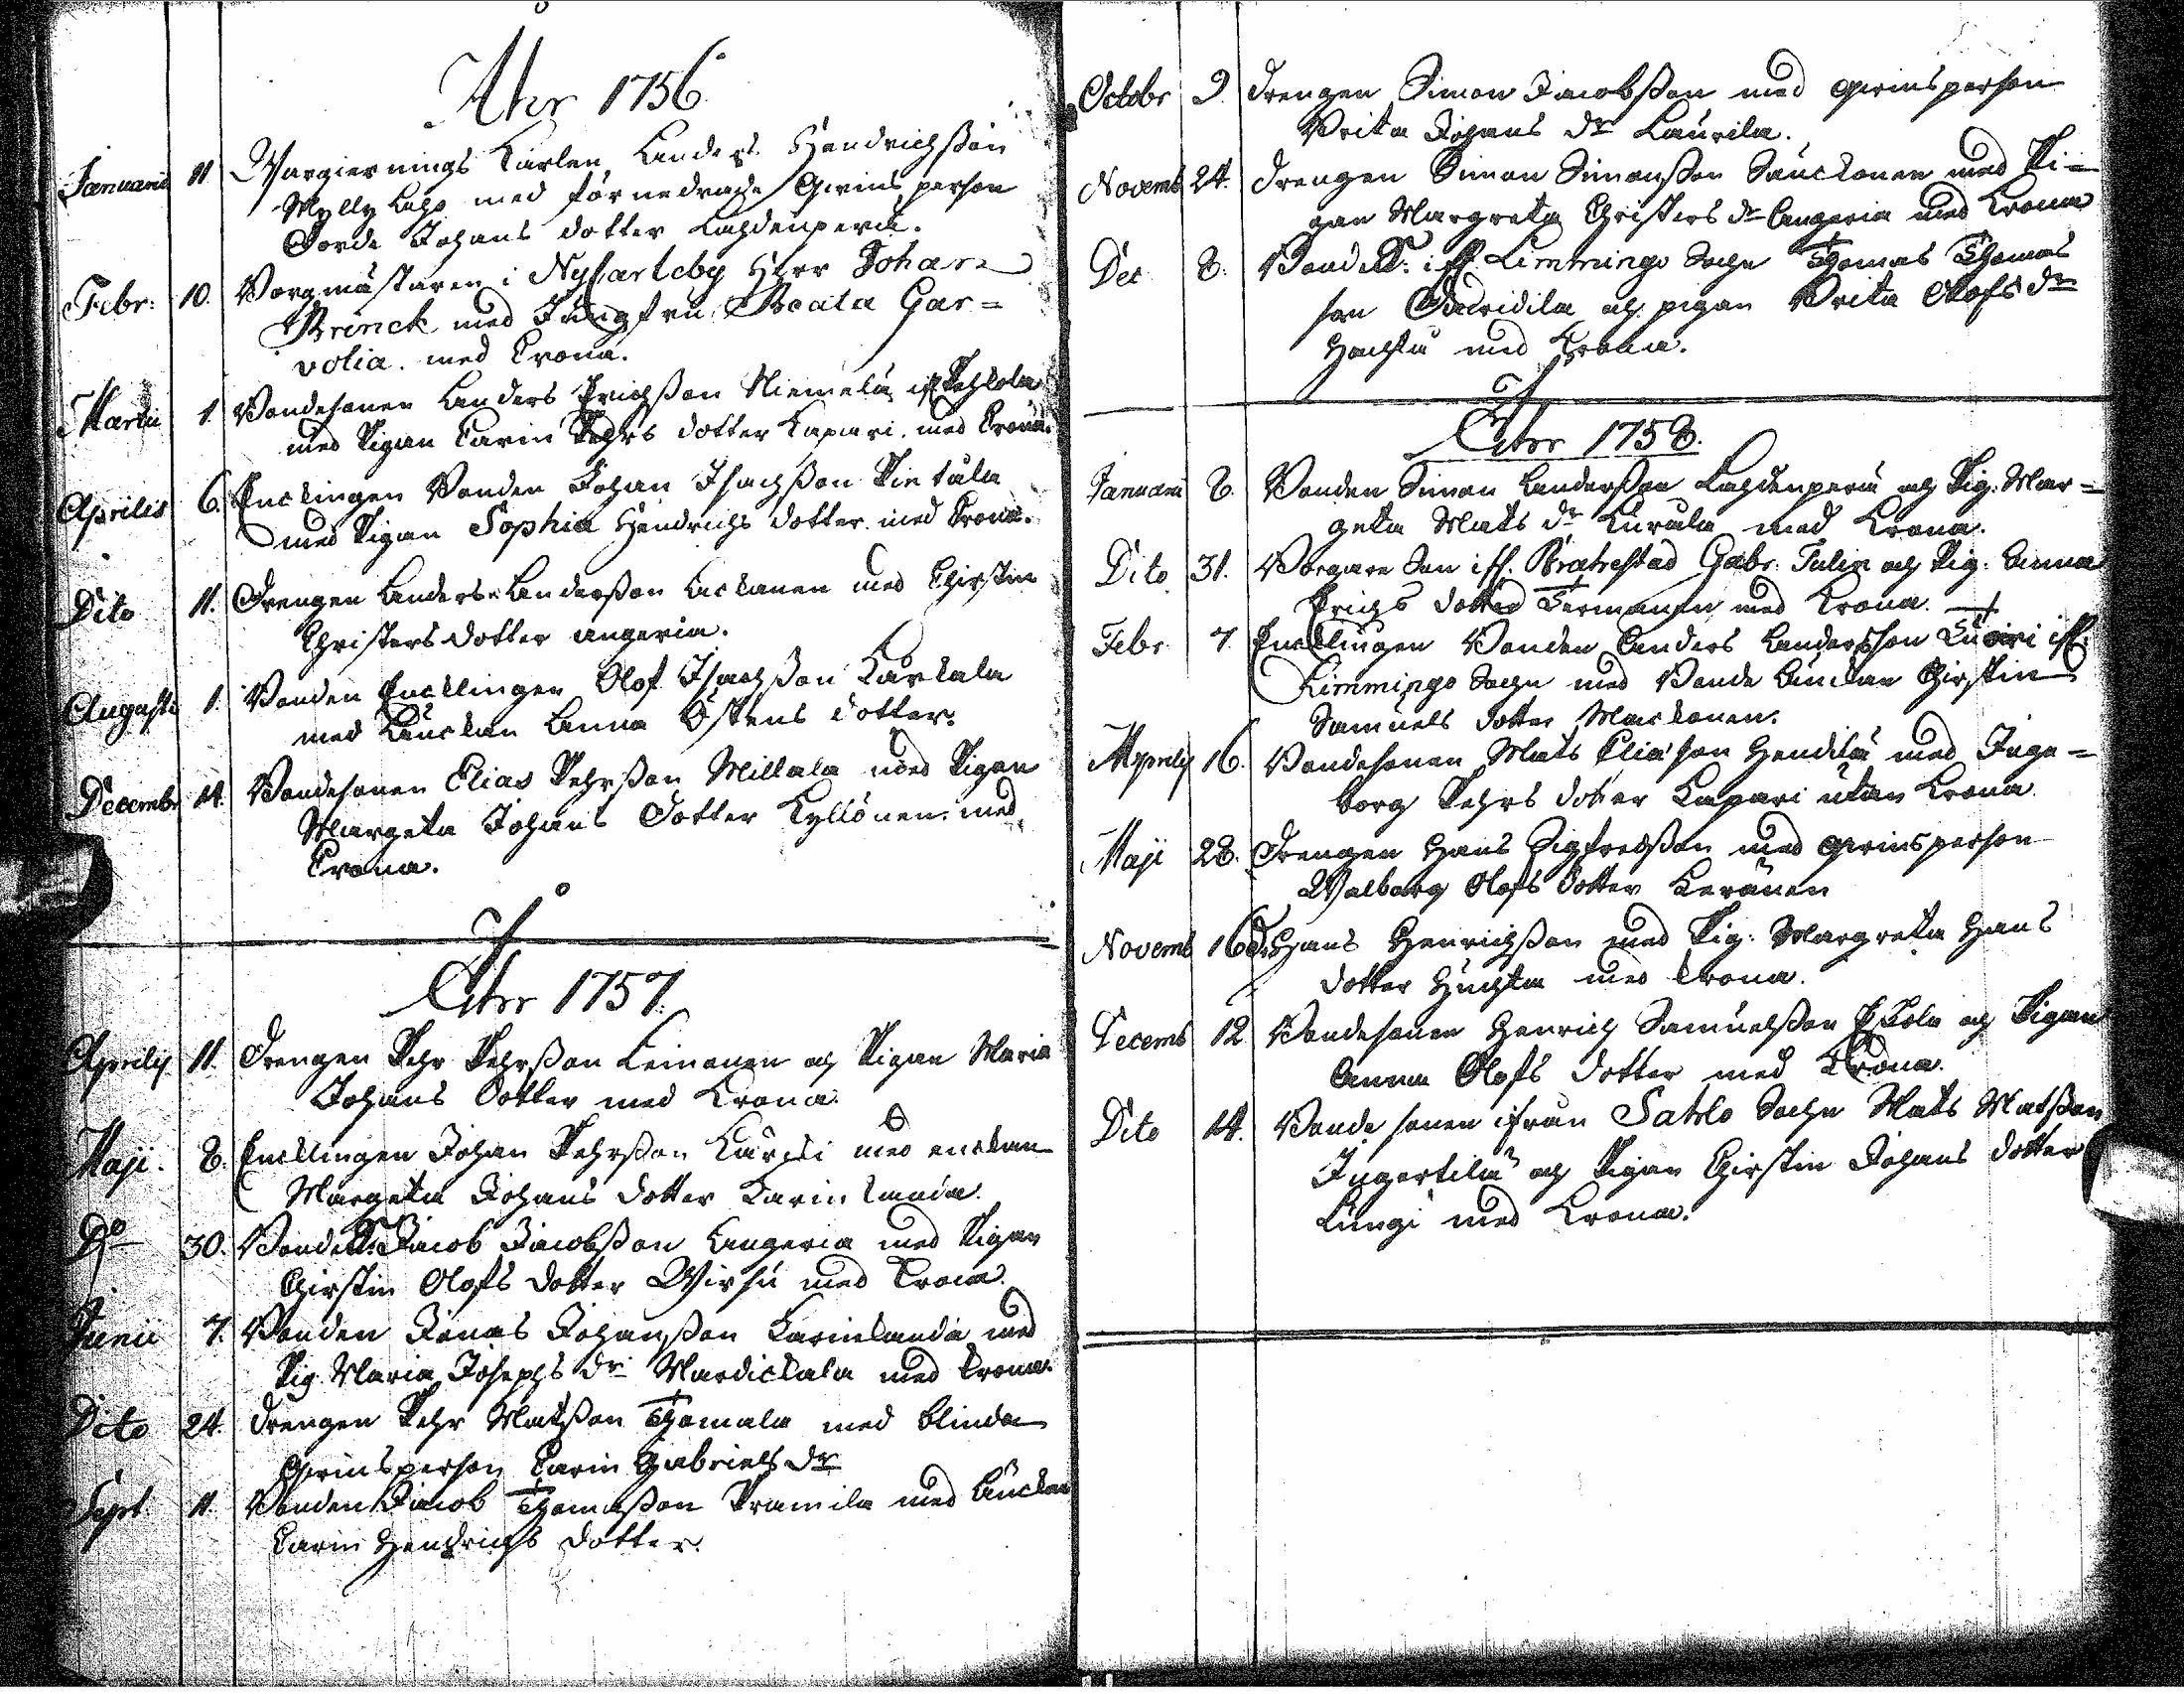 Åhr 1756
Januarii 11 Wargiernings Karlen Anders Hendrichsson
Myllylaho med förnedrade Qwins person
Dorde Johans dotter Lahdenperä.
Febr: 10. Borgmästaren i Nykarleby Herr Johan
Brinck med Jungfru Beata Gar=
volia. med Crona.
Martii 1 Bondesonen Anders Erichsson Niemelä if
med Pigan Carin Pehrs dotter Kapari. med Crona.
Aprilis 6. Encklingen Bonden Johan Isachsson Pietala
med Pigan Sophia Hendrichs dotter med Crona.
Dito 11. Drengen Anders Andersson Lackanen med Chirstin
Christers dotter Angeria.
Augusti 1. Bonden Encklingen Olof Isachsson Karkala
med Änckan Anna Östens dotter.
Decembr 14. Bondesonen Elias Pehrsson Millala med Pigan
Margeta Johans Dotter Kyllönen. med
Crona.
Åhr 1757.
Aprilis 11. Drengen Pehr Pehrsson Leinonen och Pigan Maria
Johans Dotter med Krona.
Maji. 8. Encklingen Johan Pehrsson med enckan
Margeta Johans dotter Karinkanda.
Do 30. Jacob Jacobsson Angeria med Pigan
Chirstin Olofs dotter Wirsu med Crona.
Junii 7. Bonden Jonas Johansson Karinkanda med
Pig. Maria Josephs dr Mardickala med Crona.
Dito 24. Drengen Pehr Matsson Thomala med blinda
Qwinsperson Carin Gabriels dr
Sept. 11. Bonden Jacob Thomasson Pramila med Änckan
Carin Hendrichs dotter.
Octobr 9. Drengen Simon Jacobsson med qwinsperson
Brita Johans dr Laurila.
Novemb 24. Drengen Simon Simonsson Sauckonen med Pi=
gan Margreta Christers dr Angeria med Krona
Dec 8. Limmingo Sochn Thomas Thomas
son och pigan Brita Olofs dr
Huchta med Krona.
Åhr 1758.
Januarii 8. Bonden Simon Andersson Lahdenperä och Pig: Mar=
geta Mats dr Kurula med Krona.
Dito 31. Borgare Son ifr. Brahestad Gabr: Tulin och Pig: Anna
Erichs dotter Termonen med Krona.
Febr. 7. Encklingen Bonden Anders Andersson ifr:
Limmingo Sochn med Bonde Änckan Chirstin
Samuels dotter Mackonen.
Aprilis 16. Bondesonen Mats Eliasson Hendilä med Inge=
borg Pehrs dotter Kapari utan Krona
Maji 28. Drengen Hans Sigfredsson med qwinsperson
Walborg Olofs dotter Keränen
Novemb 16 Dr: Hans Henrichsson med Pig: Margreta Hans
dotter Huchta med Crona.
Decemb 12 Bondesonen Henrich Samuelsson Eskola och Pigan
Anna Olofs dotter med Krona.
Dito 14. Bonde sonen ifrån Sahlo Sochn Mats Matsson
Ingertilä och Pigan Chirstin Johans dotter
Kungi med Krona.